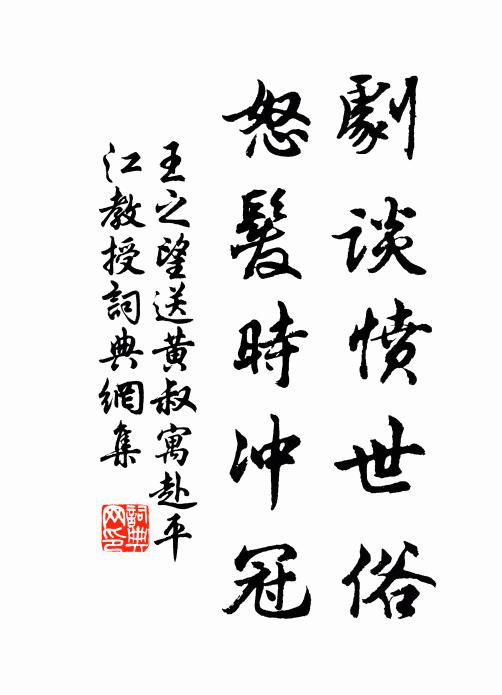 劇談憤世俗
怒髮時沖冠
王之望送黃叔寓赴平
江教授詞典網集
詞典
网印